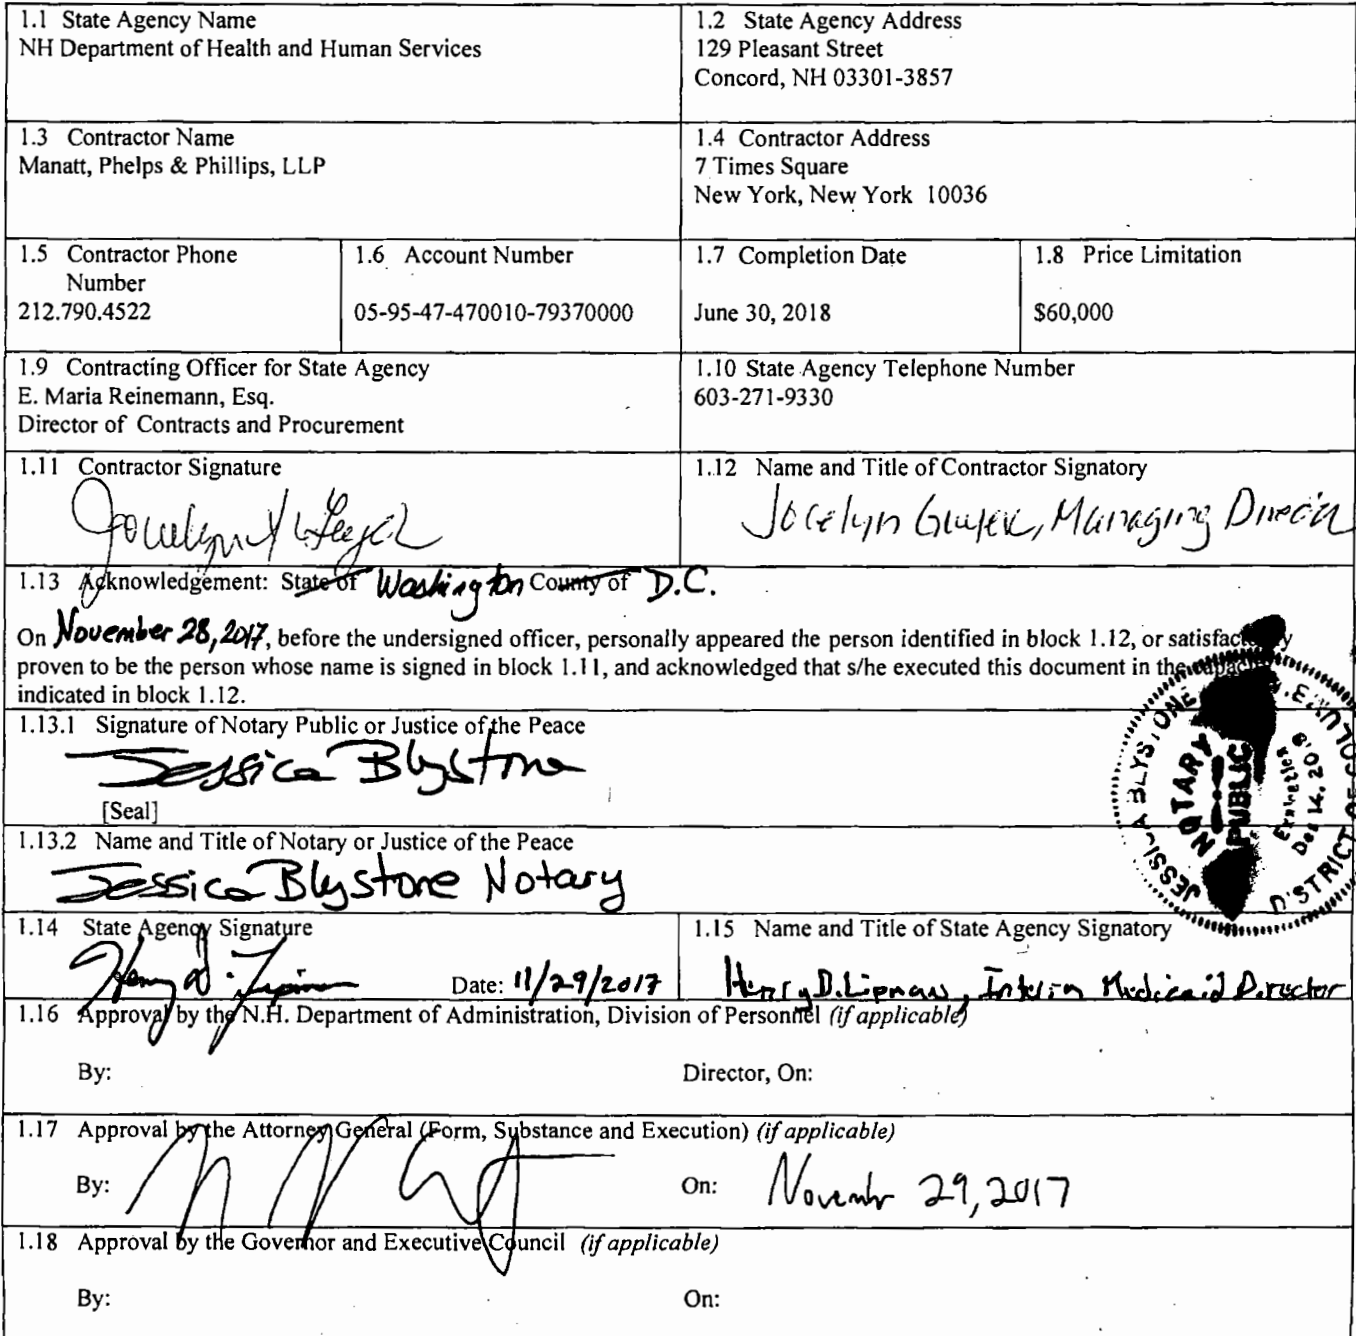 1.1 State Agency Name
NH Department of Health and Human Services
1.2 State Agency Address
129 Pleasant Street
Concord, NH 03301-3857
1.3 Contractor Name
Manatt, Phelps & Phillips, LLP
1.4 Contractor Address
7 Times Square
New York, New York 10036
1.5 Contractor Phone
Number
212.790.4522
1.6 Account Number
05-95-47-470010-79370000
1.7 Completion Date
June 30, 2018
1.8 Price Limitation
$60,000
1.9 Contracting Officer for State Agency
E. Maria Reinemann, Esq.
Director of Contracts and Procurement
1.10 State Agency Telephone Number
603-271-9330
1.11 Contractor Signature
1.12 Name and Title of Contractor Signatory
Jocelyn Guyer, Managing Director
1.13 Acknowledgement: State of Washington County of D.C.
On November 28, 2017, before the undersigned officer, personally appeared the person identified in block 1.12, or satisfactorily
proven to be the person whose name is signed in block 1.11, and acknowledged that s/he executed this document in the capacity
indicated in block 1.12.
1.13.1 Signature of Notary Public or Justice of the Peace
Jessica Blystone
[Seal]
JESSICA BLYSTONE
NOTARY
PUBLIC
Expires
Dec 14, 20
DISTRICT OF COLUM
1.13.2 Name and Title of Notary or Justice of the Peace
Jessica Blystone Notary
1.14 State Agency Signature
Date: 11/29/2017
1.15 Name and Title of State Agency Signatory
Henry D. Lipman, Interim Medicaid Director
1.16 Approval by the N.H. Department of Administration, Division of Personnel (if applicable)
By:
Director, On:
1.17 Approval by the Attorney General (Form, Substance and Execution) (if applicable)
By:
On: November 29, 2017
1.18 Approval by the Governor and Executive Council (if applicable)
By:
On: